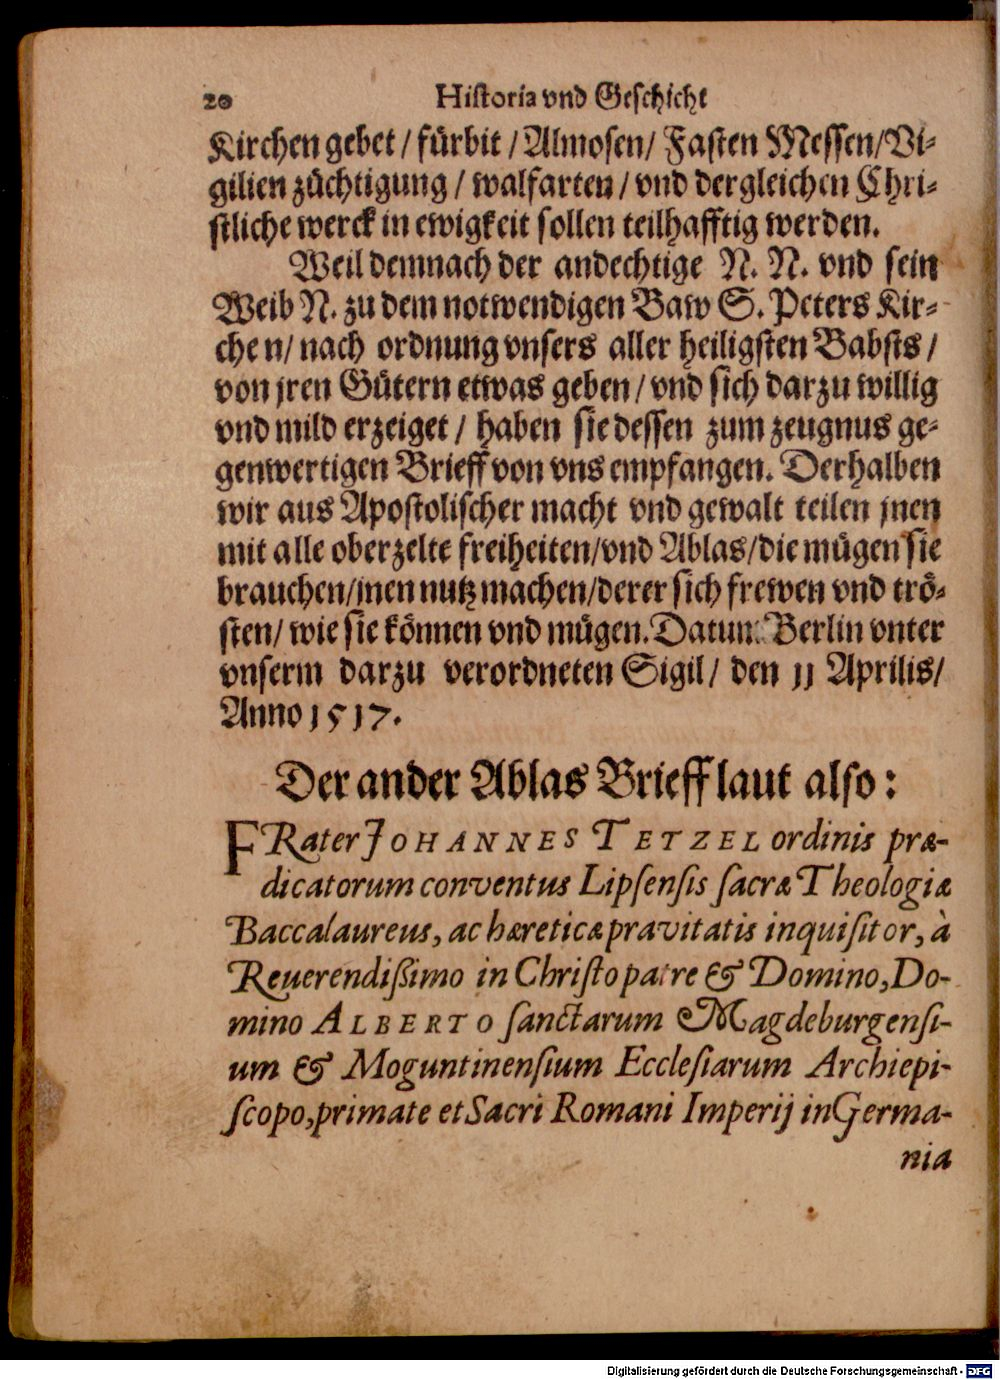 20 Historia vnd Geschicht
Kirchen gebet / fürbit / Almosen / Fasten Messen / Vi-
gilien züchtigung / walfarten / vnd dergleichen Chri-
stliche werck in ewigkeit sollen teilhafftig werden.
Weil demnach der andechtige N. N. vnd sein
Weib N. zu dem notwendigen Baw S. Peters Kir-
che n / nach ordnung vnsers aller heiligsten Babsts /
von jren Gütern etwas geben / vnd sich darzu willig
vnd mild erzeiget / haben sie dessen zum zeugnus ge-
genwertigen Brieff von vns empfangen. Derhalben
wir aus Apostolischer macht vnd gewalt teilen jnen
mit alle oberzelte freiheiten / vnd Ablas / die mügen sie
brauchen / jnen nutz machen / derer sich frewen vnd trö-
sten / wie sie können vnd mügen. Datum Berlin vnter
vnserm darzu verordneten Sigil / den 11 Aprilis /
Anno 1517.
Der ander Ablas Brieff laut also:
FRater JOHANNES TETZEL ordinis præ-
dicatorum conventus Lipsensis sacræ Theologiæ
Baccalaureus, ac hæreticæ pravitatis inquisitor, à
Reuerendißimo in Christo patre & Domino, Do-
mino ALBERTO sanctarum Magdeburgensi-
um & Moguntinensium Ecclesiarum Archiepi-
scopo, primate et Sacri Romani Imperij in Germa-
nia
Digitalisierung gefördert durch die Deutsche Forschungsgemeinschaft - DFG